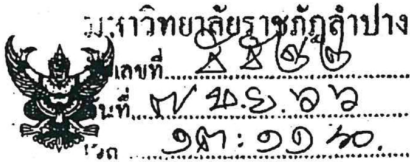 มหาวิทยาลัยราชภัฏลำปาง
เลขที่
วันที่ ๗ พ.ย. ๖๖
เวลา ๑๓:๑๑ น.